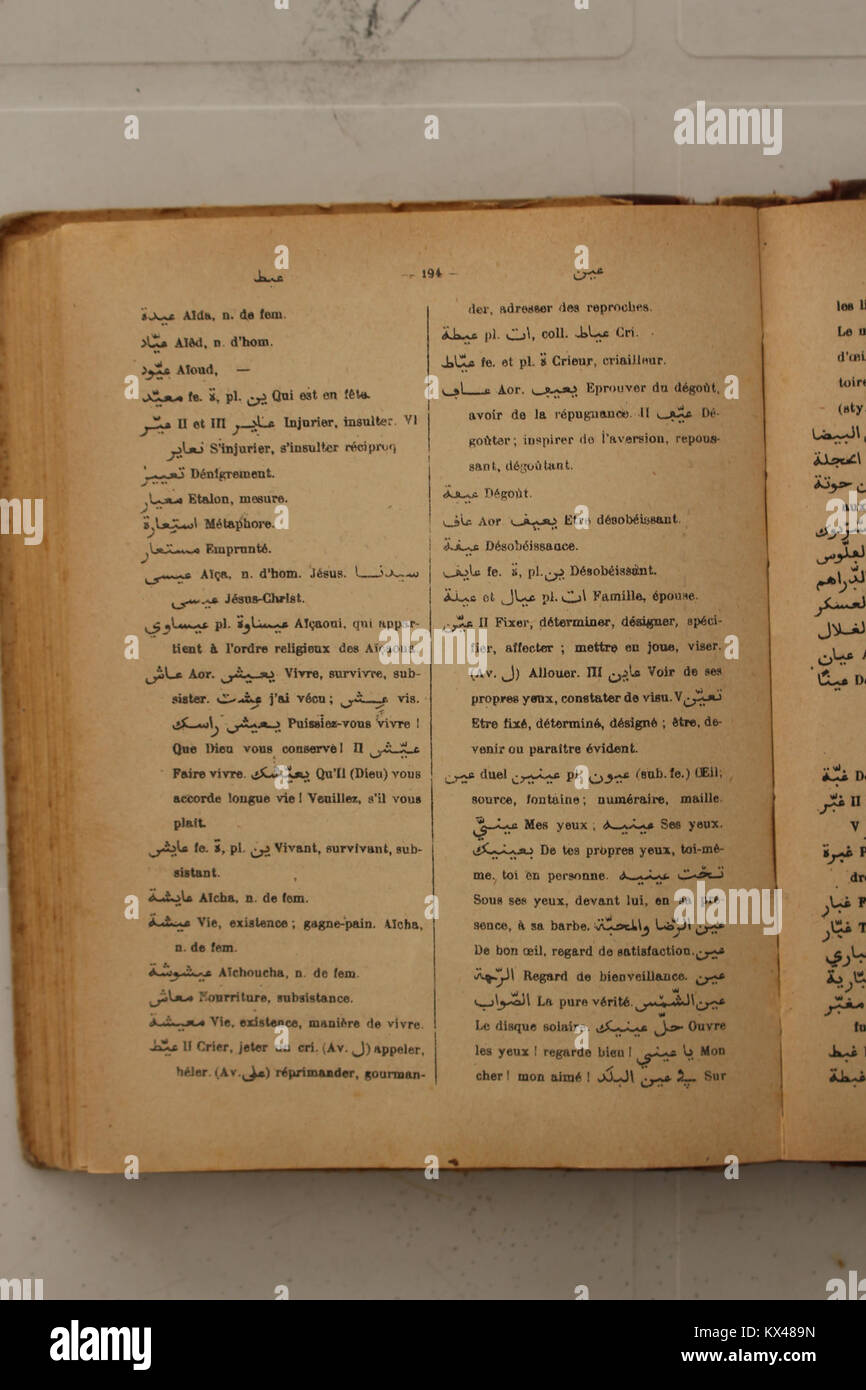 عيط — 194 — عين
عيدة Aïda, n. de fem.
عيّاد Aïêd, n. d'hom.
عيّود Aïoud, —
معيّد fe. ة, pl. ين Qui est en fête.
عيّر II et III عاير Injurier, insulter. VI
تعاير S'injurier, s'insulter réciproq
تعيير Dénigrement.
معيار Etalon, mesure.
استعارة Métaphore.
مستعار Emprunté.
عيسى Aïça, n. d'hom. Jésus. سيدنا
عيسى Jésus-Christ.
عيساوي pl. عيساوة Aïçaoui, qui appar-
tient à l'ordre religieux des Aïçaoua.
عاش Aor. يعيش Vivre, survivre, sub-
sister. عشت j'ai vécu ; عيش vis.
يعيش راسك Puissiez-vous vivre !
Que Dieu vous conserve ! II عيّش
Faire vivre. يعيّشك Qu'Il (Dieu) vous
accorde longue vie ! Veuillez, s'il vous
plait.
عايش fe. ة, pl. ين Vivant, survivant, sub-
sistant.
عايشة Aïcha, n. de fem.
عيشة Vie, existence ; gagne-pain. Aïcha,
n. de fem.
عيشوشة Aïchoucha, n. de fem.
معاش Nourriture, subsistance.
معيشة Vie, existence, manière de vivre.
عيّط II Crier, jeter un cri. (Av. ل) appeler,
héler. (Av. على) réprimander, gourman-
der, adresser des reproches.
عيطة pl. ات, coll. عياط Cri.
عيّاط fe. et pl. ة Crieur, criailleur.
عاف Aor. يعيف Eprouver du dégoût,
avoir de la répugnance. II عيّف Dé-
goûter ; inspirer de l'aversion, repous-
sant, dégoûtant.
عيفة Dégoût.
عاف Aor. يعيف Etre désobéissant.
عيفة Désobéissance.
عايف fe. ة, pl. ين Désobéissant.
عيلة et عيال pl. ات Famille, épouse.
عيّن II Fixer, déterminer, désigner, spéci-
fier, affecter ; mettre en joue, viser.
(Av. ل) Allouer. III عاين Voir de ses
propres yeux, constater de visu. V تعيّن
Etre fixé, déterminé, désigné ; être, de-
venir ou paraître évident.
عين duel عينين pl. عيون (sub. fe.) Œil;
source, fontaine ; numéraire, maille.
عينيّ Mes yeux ; عينيه Ses yeux.
بعينيك De tes propres yeux, toi-mê-
me, toi en personne. تحت عينيه
Sous ses yeux, devant lui, en sa pré-
sence, à sa barbe. عين الرّضا والمحبّة
De bon œil, regard de satisfaction. عين
الرّحمة Regard de bienveillance. عين
الصّواب La pure vérité. عين الشّمس
Le disque solaire. حلّ عينيك Ouvre
les yeux ! regarde bien ! يا عيني Mon
cher ! mon aimé ! في عين البلد Sur
les
Le
d'œi
toire
(sty
البيضا
الحجلة
حوتة
aux
الفلّوس
الدّراهم
العسكر
الغلال
عيان
عينًا
غبّة
غبّر II
V
غبرة
dr
غبار
غبّار
غباري
مغبّر
غبط
غبطة
alamy
a
Image ID: KX489N
www.alamy.com